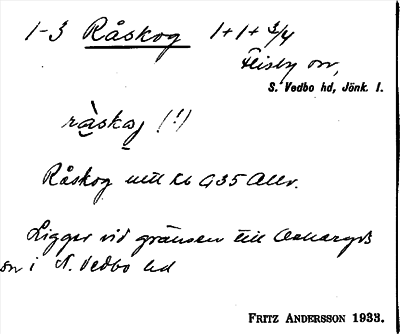 1-3 Råskog 1+1+3/4
Flisby sn,
S. Vedbo hd, Jönk. l.
råskog (!)
Råskog mtl kb G35 Allv.
Ligger vid gränsen till
sn i N. Vedbo hd
FRITZ ANDERSSON 1933.